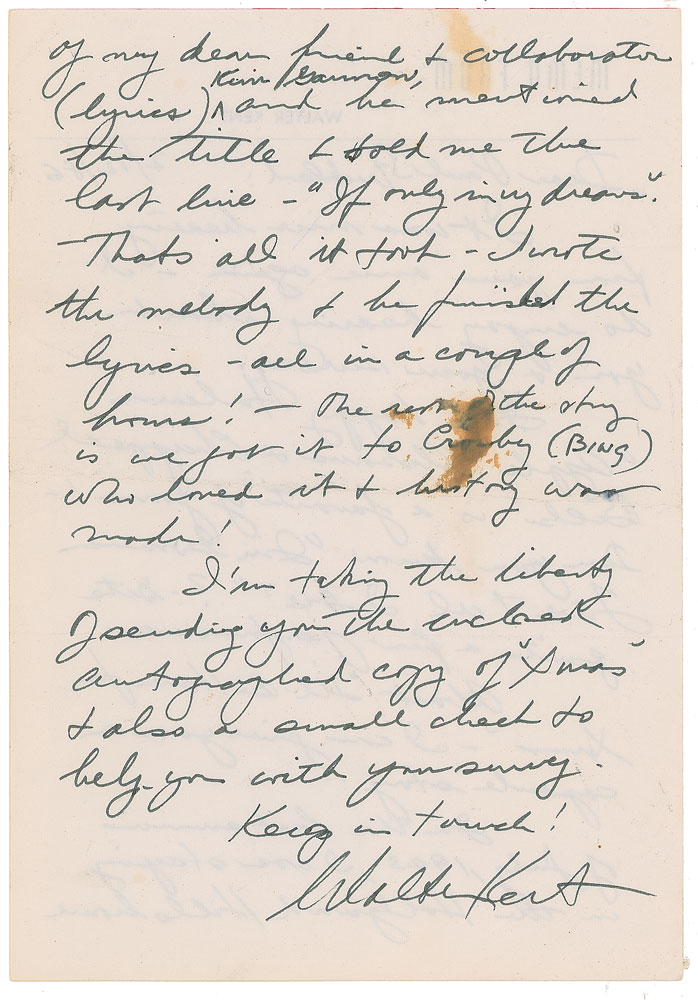 of my dear friend & collaborator
Kim Gannon,
(lyrics) ^ and he mentioned
the title & told me the
last line - "If only in my dreams".
Thats all it took - I wrote
the melody & he finished the
lyrics - all in a couple of
hours! - The rest of the story
is we got it to Crosby (BING)
who loved it & history was
made!
I'm taking the liberty
of sending you the enclosed
autographed copy of "Xmas"
& also a small check to
help you with your survey.
Keep in touch!
Walter Kent